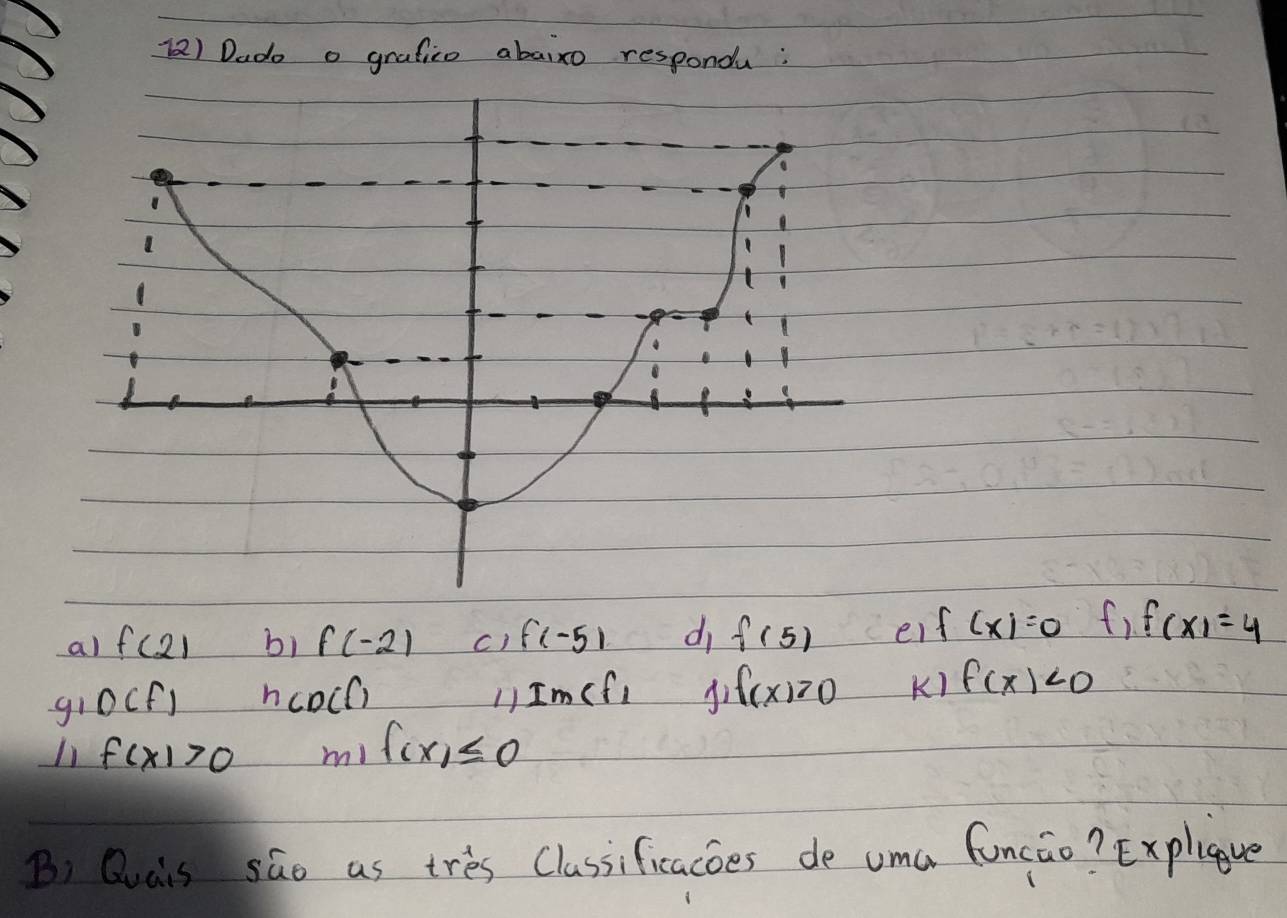 12) Dado o grafico abaixo responda :
a) f(2) b) f(-2) c) f(-5) d) f(5) e) f(x)=0 f) f(x)=4
g) D(f) h CD(f) i) Im(f) j) f(x)≥0 K) f(x)<0
l) f(x)>0 m) f(x)≤0
B) Quais são as três Classificacões de uma função? Explique